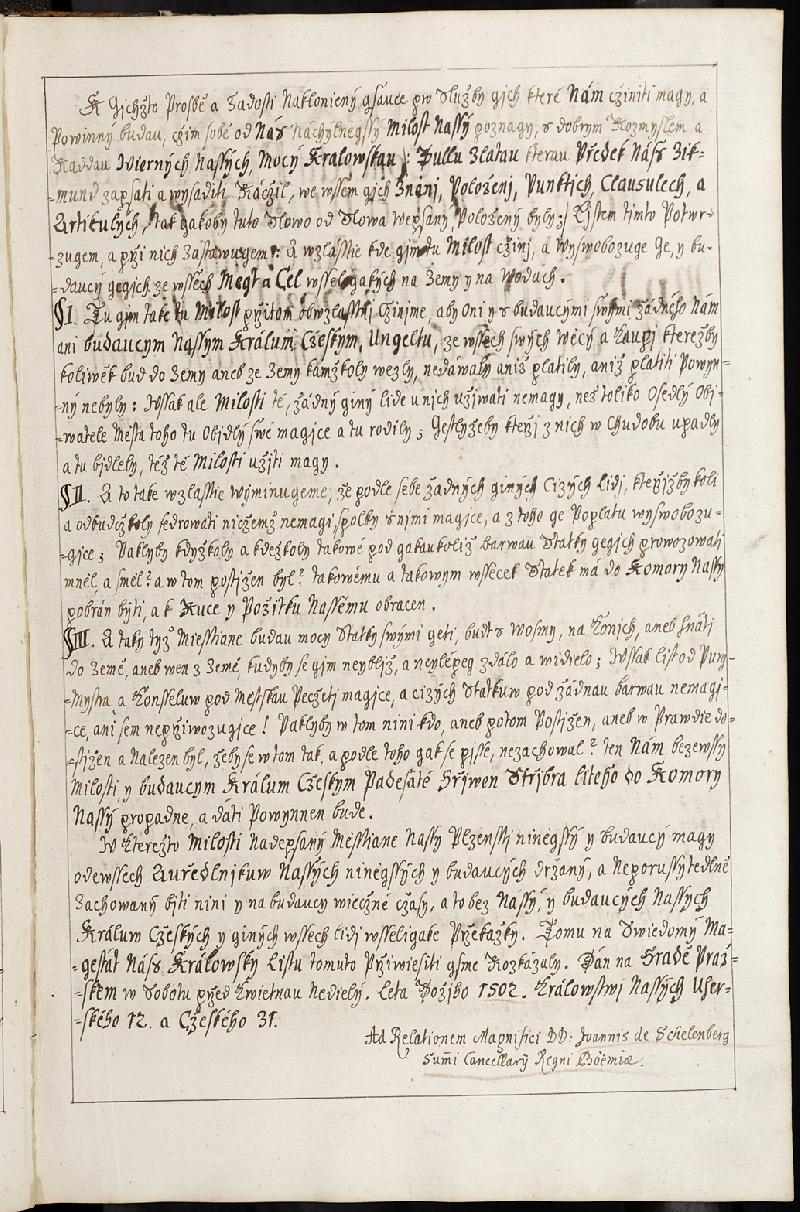 K Gjchžto Prosbě a Žadosti Nakloniený gsauce pro Služby gjch které Nám cžiniti magy, a
Powinny budau, cžim sobě od Nás Náchylnegssý Milost Nassý poznagy, s dobrym Rozmyslem a
Raddau Wierných Nassých, Mocý Kralowskau : Bullu Zlatau kterau Předek Náss Zik-
-mund zapsati a wysaditi Ráčžil, we wssem gich Znánj, Položenj, Punktých, Clausulech, a
Artikulých, tak gakoby tuto Slowo od Slowa wepsaný, Položený byly :/ Listem timto Potwr-
zugem, a při nich Zastawugem : A wzlasstie kde gim tu Milost cžinj, a Wyswobozuge Ge, y bu-
-daucý gegich, ze wssech Megt a Cel wsseligakých na Zemy y na Wodách.
§I. Tu gim také tu Milost přitom obwzlasstě Cžinjme, aby Oni y s budaucými swými žádného Nám
ani budaucym Nassým Králum Cžeským, Ungeltu, ze wssech swých wěcý a kaupj kterežby
koliwěk bud do Zemy aneb ze Zemy kamžkoly wezly, nedáwaly aniž platily, aniž platiti Powyn-
-ný nebyly : Wssak ale Milosti té, žádný giný lidé u nich užjwati nemagy, než toliko Osedlý Obj-
-watele Města toho tu Obidlý swé magjce a tu rodily ; Gestlyžeby kteřj z nich w Chudobu upadly
a tu bjdleby, též té Milosti užjti magy.
§II. A to také wzlasstie wýminugeme, že podle sebe žadných giných Cizých Lidj, kteřjžby koli
a odkudžkoly fedrowati nicžemž nemagi, spolky s nimi magjce, a z toho ge Poplatu wyswobozu-
-gjce ; Paklyby kdyžkoly a kdežkoly takowé pod gakaukoliž barwau Statky gegich prowozowati
mněl a směl? a w tom postižen byl? takowému a takowym wssecek Statek má do Komory Nassý
pobrán býti, a k Ruce y Požitku Nassému obracen.
§III. A taky tyž Miesstiane budau mocy Statky swými geti, budto Wozmy, na konjch, aneb hnáti
do Země, aneb wen z Země, kudyby se gim neyblýž, a neylépeg zdálo a widielo ; Wssak list od Pur-
-kmystra a Konsseluw pod Městskau Pecžetj magjce, a cizých Statkuw pod žádnau barwau nemagj-
-ce, ani sem nepřiwozugjce ! Paklyby w tom nini kdo, aneb potom Postižen, aneb w Prawdie do-
-stižen a Nalezen byl, žeby se w tom tak, a podle toho gak se pjsse, nezachowal? ten Nám bezewssý
Milosti y budaucym Králum Cžeským Padesáte Hřiwen Střjbra litého do Komory
Nassý propadne, a dáti Powynnen bude.
W kterežto Milosti Nadepsaný Měsstiane Nassy Plzensstj ninégssý y budaucý magy
odewssech Auředlnjkuw Nassých ninégssých y budaucých držaný, a Neporussytedlně
Zachowaný býti nini y na budaucý wiecžné cžasy, a to bez Nassý, y budaucých Nassých
Králuw Cžeských y giných wssech lidj wsseligaké Překážky. Tomu na Swiedomý Ma-
-gestat Náss Královský Listu tomuto Přiwiesiti gsme Rozkázaly. Dán na Hradě Praž-
-ském w Sobotu před kwietnau Nedielý. Léta Božjho 1502. Královstwj Nassých Uher-
-ského 12. a Cžeského 31.
Ad Relationem Magnifici DD: Joannis de Schelenberg
Sumi Cancellarÿ Regni Boëmiæ.